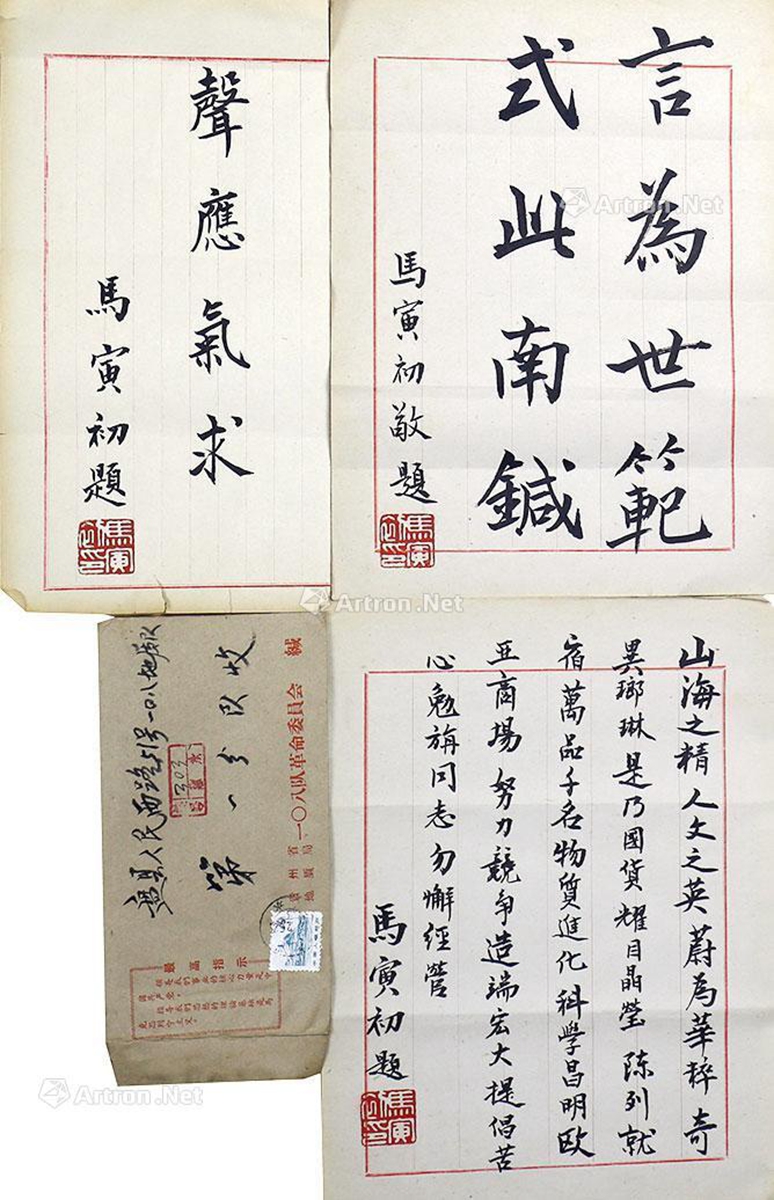 聲應氣求
馬寅初題
馬寅初印
言為世範
式此南鍼
馬寅初敬題
馬寅初印
盘县人民西路51号一〇八地质队
第一分队收
貴州省地质局一〇八队革命委員会 緘
最高指示
山海之精人文之英蔚為華粹奇
異瑯琳是乃國貨耀目晶瑩陈列就
宿萬品千名物質進化科學昌明歐
亞商場努力競争造端宏大提倡苦
心勉旃同志勿懈經營
馬寅初題
馬寅初印
Artron.Net
Artron.Net
Artron.Net
Artron.Net